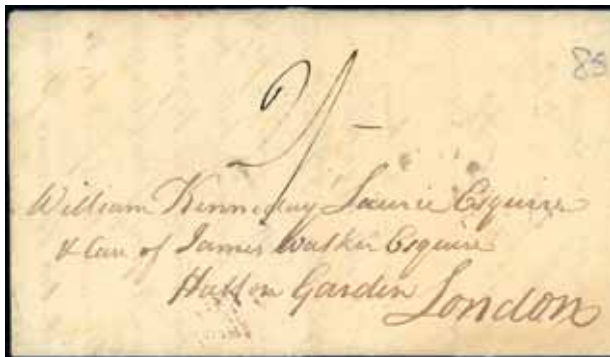 85
2/-
William Kennedy Laurie Esquire
& Care of James Walker Esquire
Hatton Garden
London